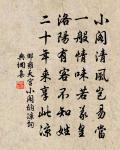 小閣清風豈易當
一般情味若羲皇
洛陽有客不知姓
二十年來享此涼
邵雍天宮小閣納涼詞
典網集